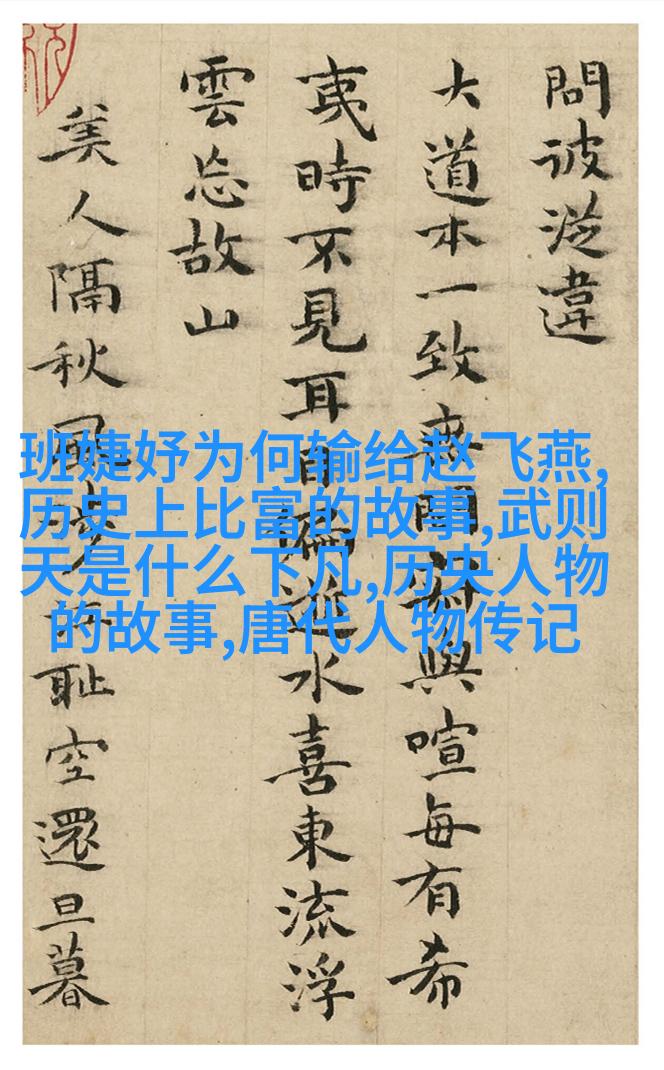 問彼違
大道本一致與喧每有希
夷時不見耳目水喜東流浮
雲忘故山
美人隔秋風耻空還旦暮
班婕妤为何输给赵飞燕,
历史上比富的故事,武则
天是什么下凡,历史人物
的故事,唐代人物传记